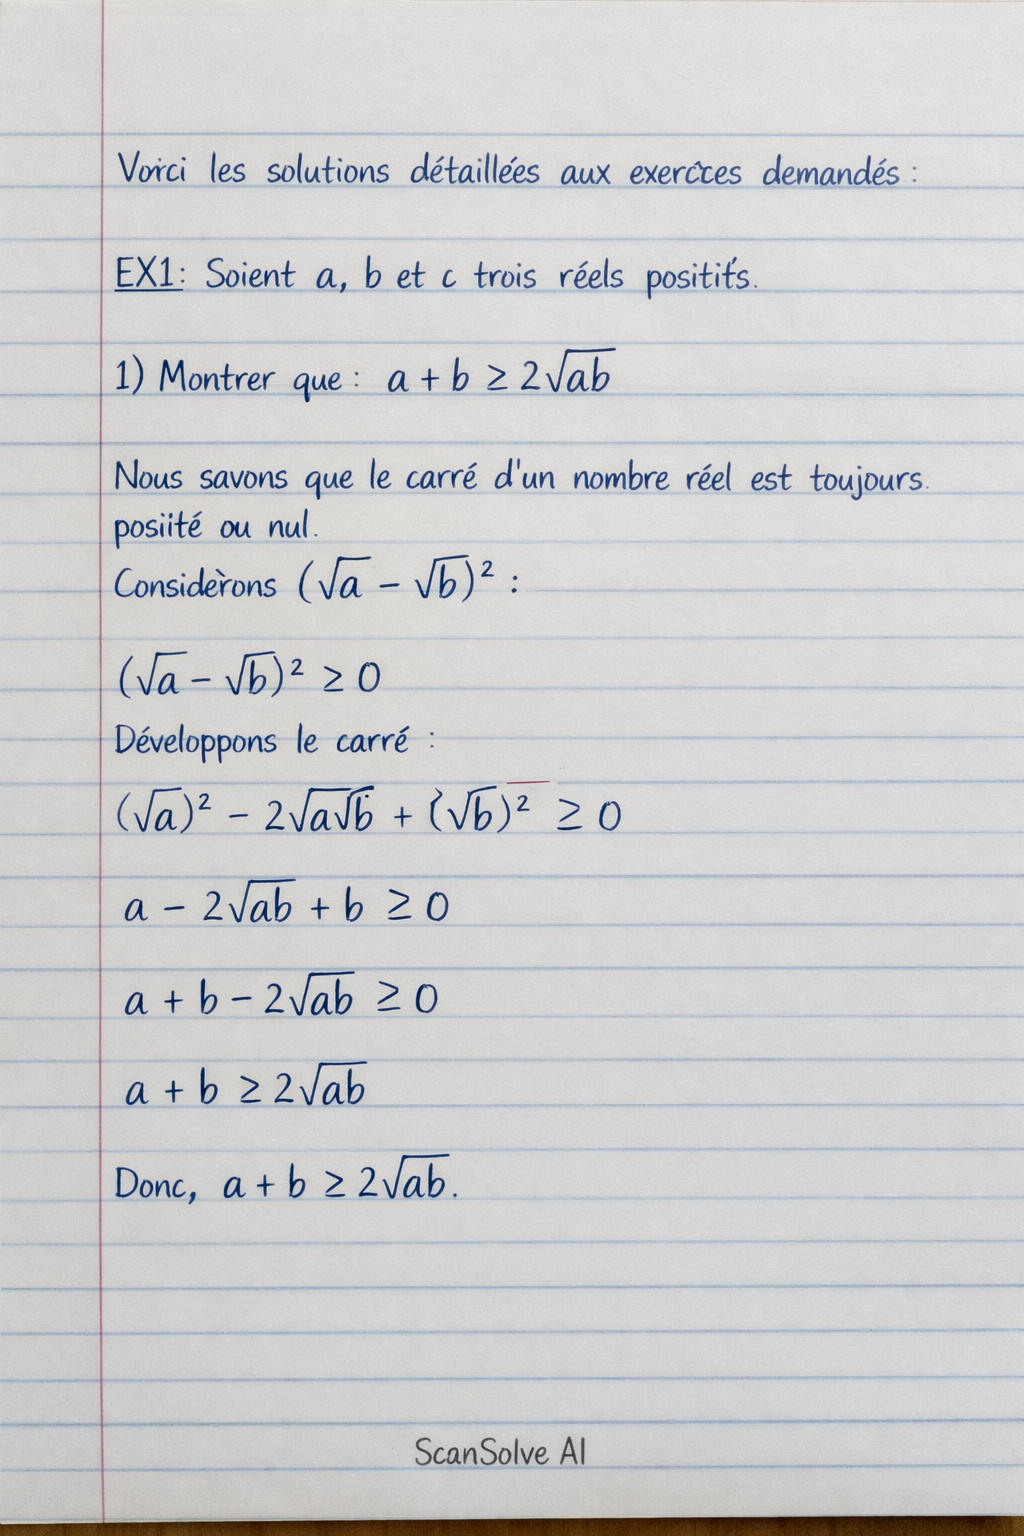 Voici les solutions détaillées aux exercices demandés :
EX1: Soient a, b et c trois réels positifs.
1) Montrer que : a + b ≥ 2√ab
Nous savons que le carré d'un nombre réel est toujours.
posiité ou nul.
Considèrons (√a - √b)² :
(√a - √b)² ≥ 0
Développons le carré :
(√a)² - 2√a√b + (√b)² ≥ 0
a - 2√ab + b ≥ 0
a + b - 2√ab ≥ 0
a + b ≥ 2√ab
Donc, a + b ≥ 2√ab.
ScanSolve AI